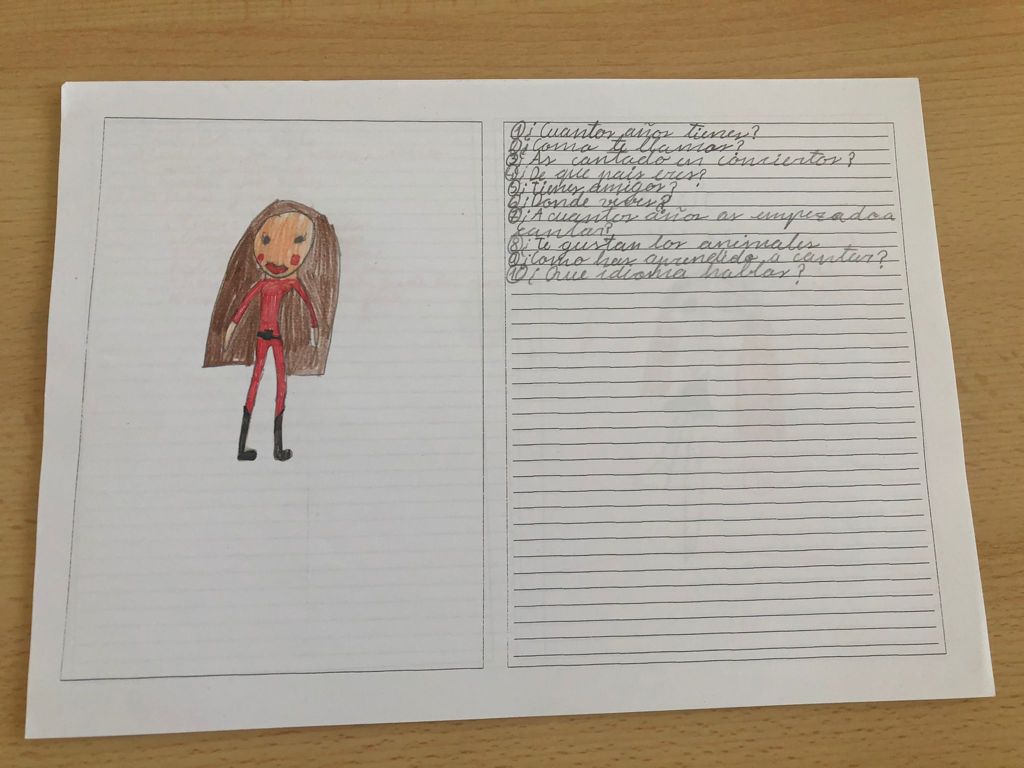 ① ¿Cuantos años tienes?
② ¿Como te llamas?
③ ¿As cantado en conciertos?
④ ¿De que país eres?
⑤ ¿Tienes amigos?
⑥ ¿Donde vives?
⑦ ¿A cuantos años as empezado a
cantar?
⑧ ¿Te gustan los animales
⑨ ¿Como has aprendido a cantar?
⑩ ¿Que idioma hablas?